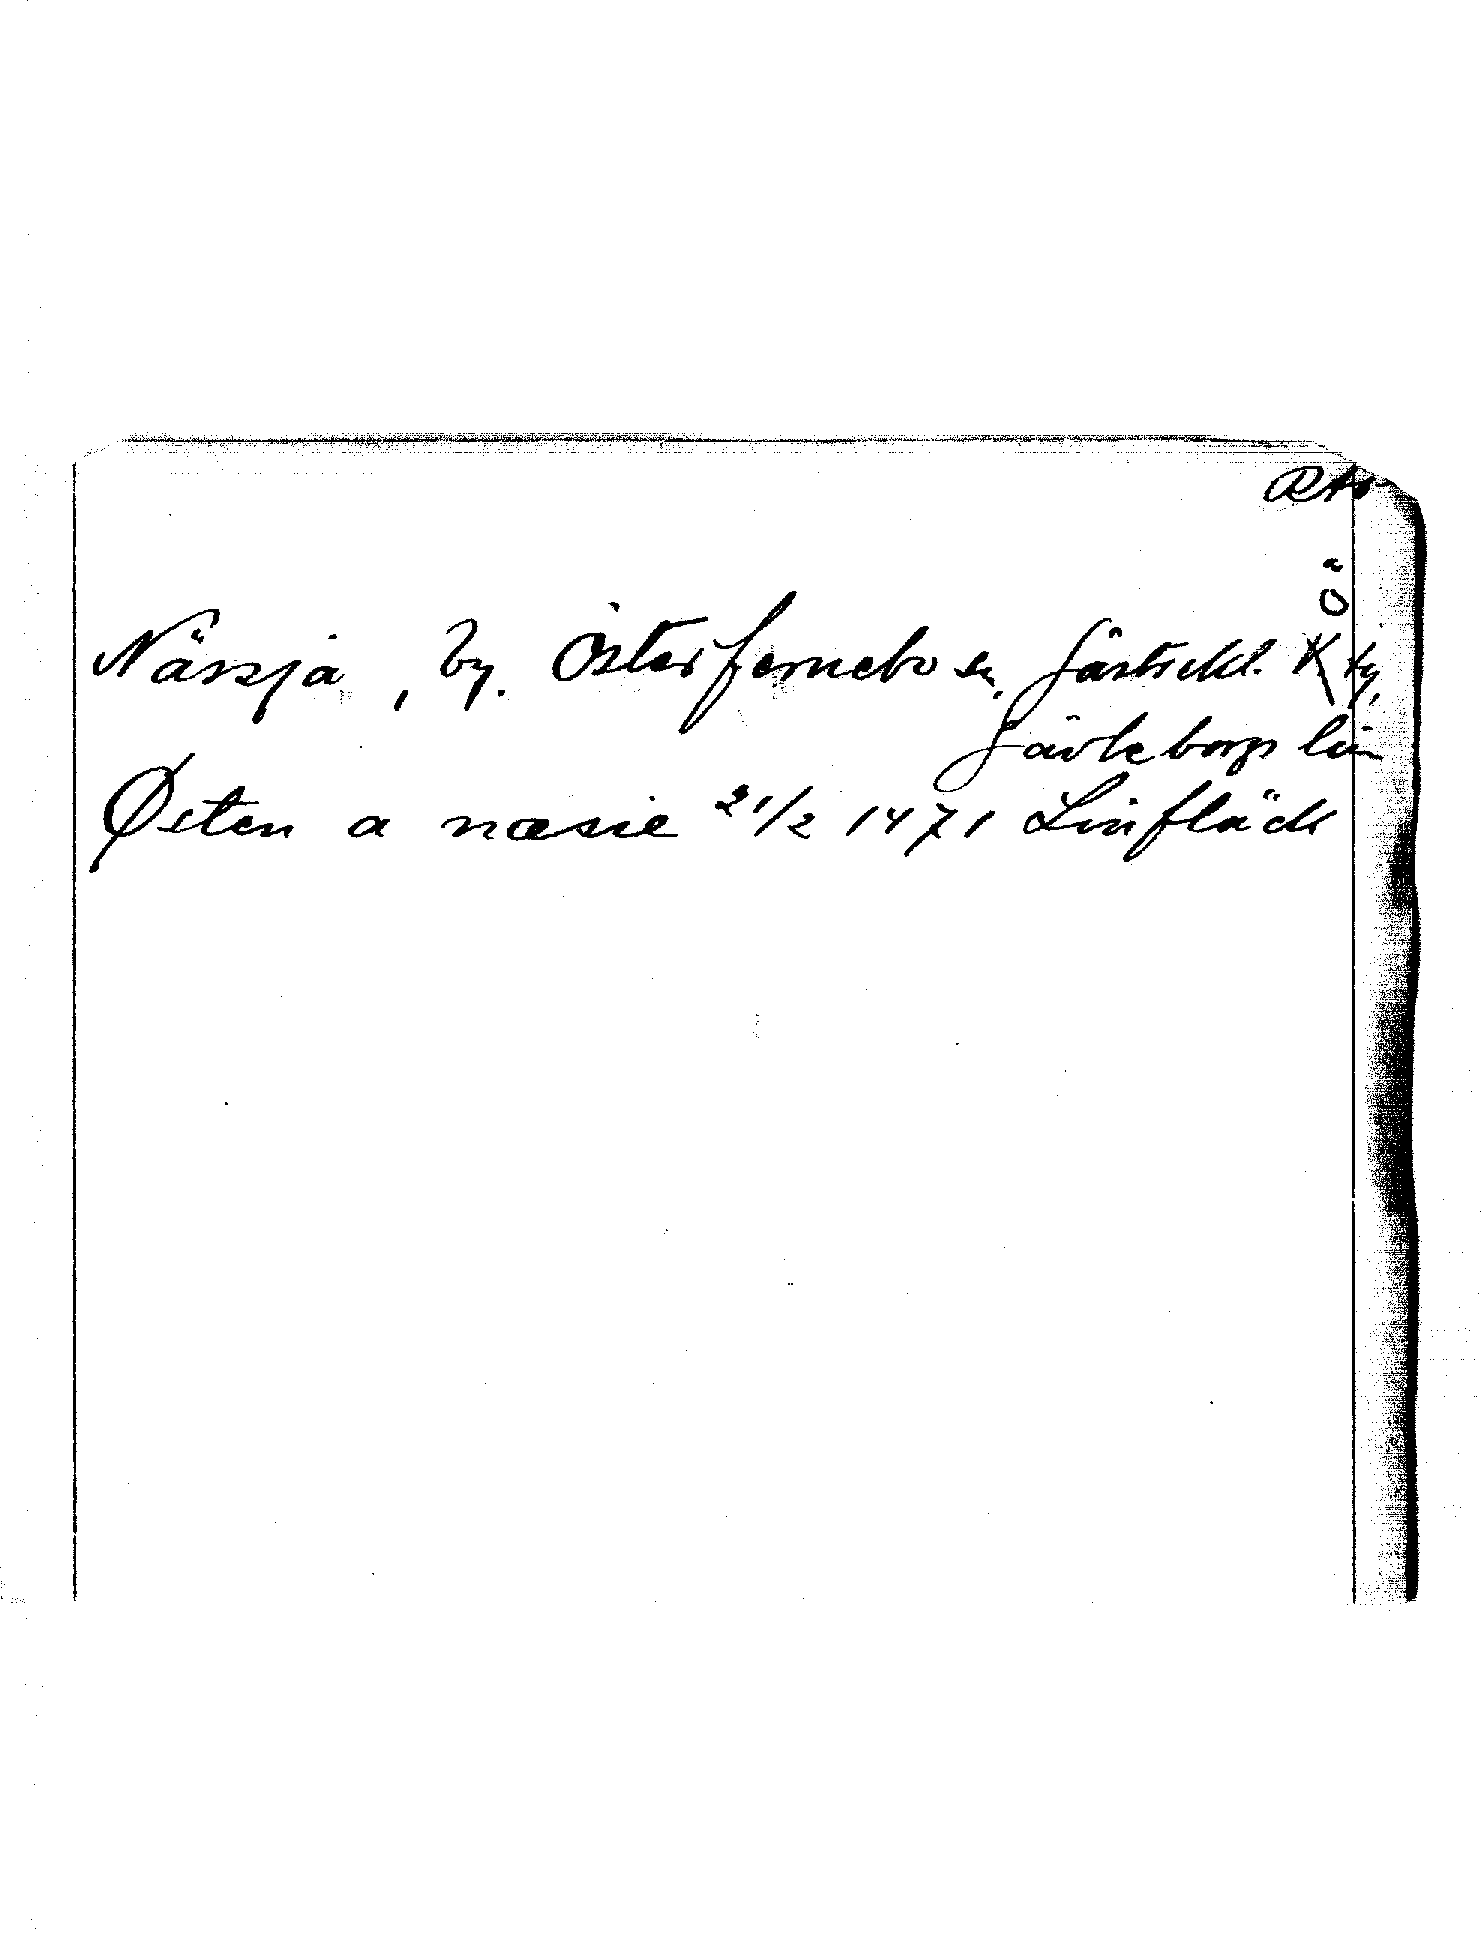 RAp
Ö
Närsjä, by. Österfernebo sn, Gästrikl. K ky,
Gävleborgs län
Østen a næsie 21/2 1471 Linfläck